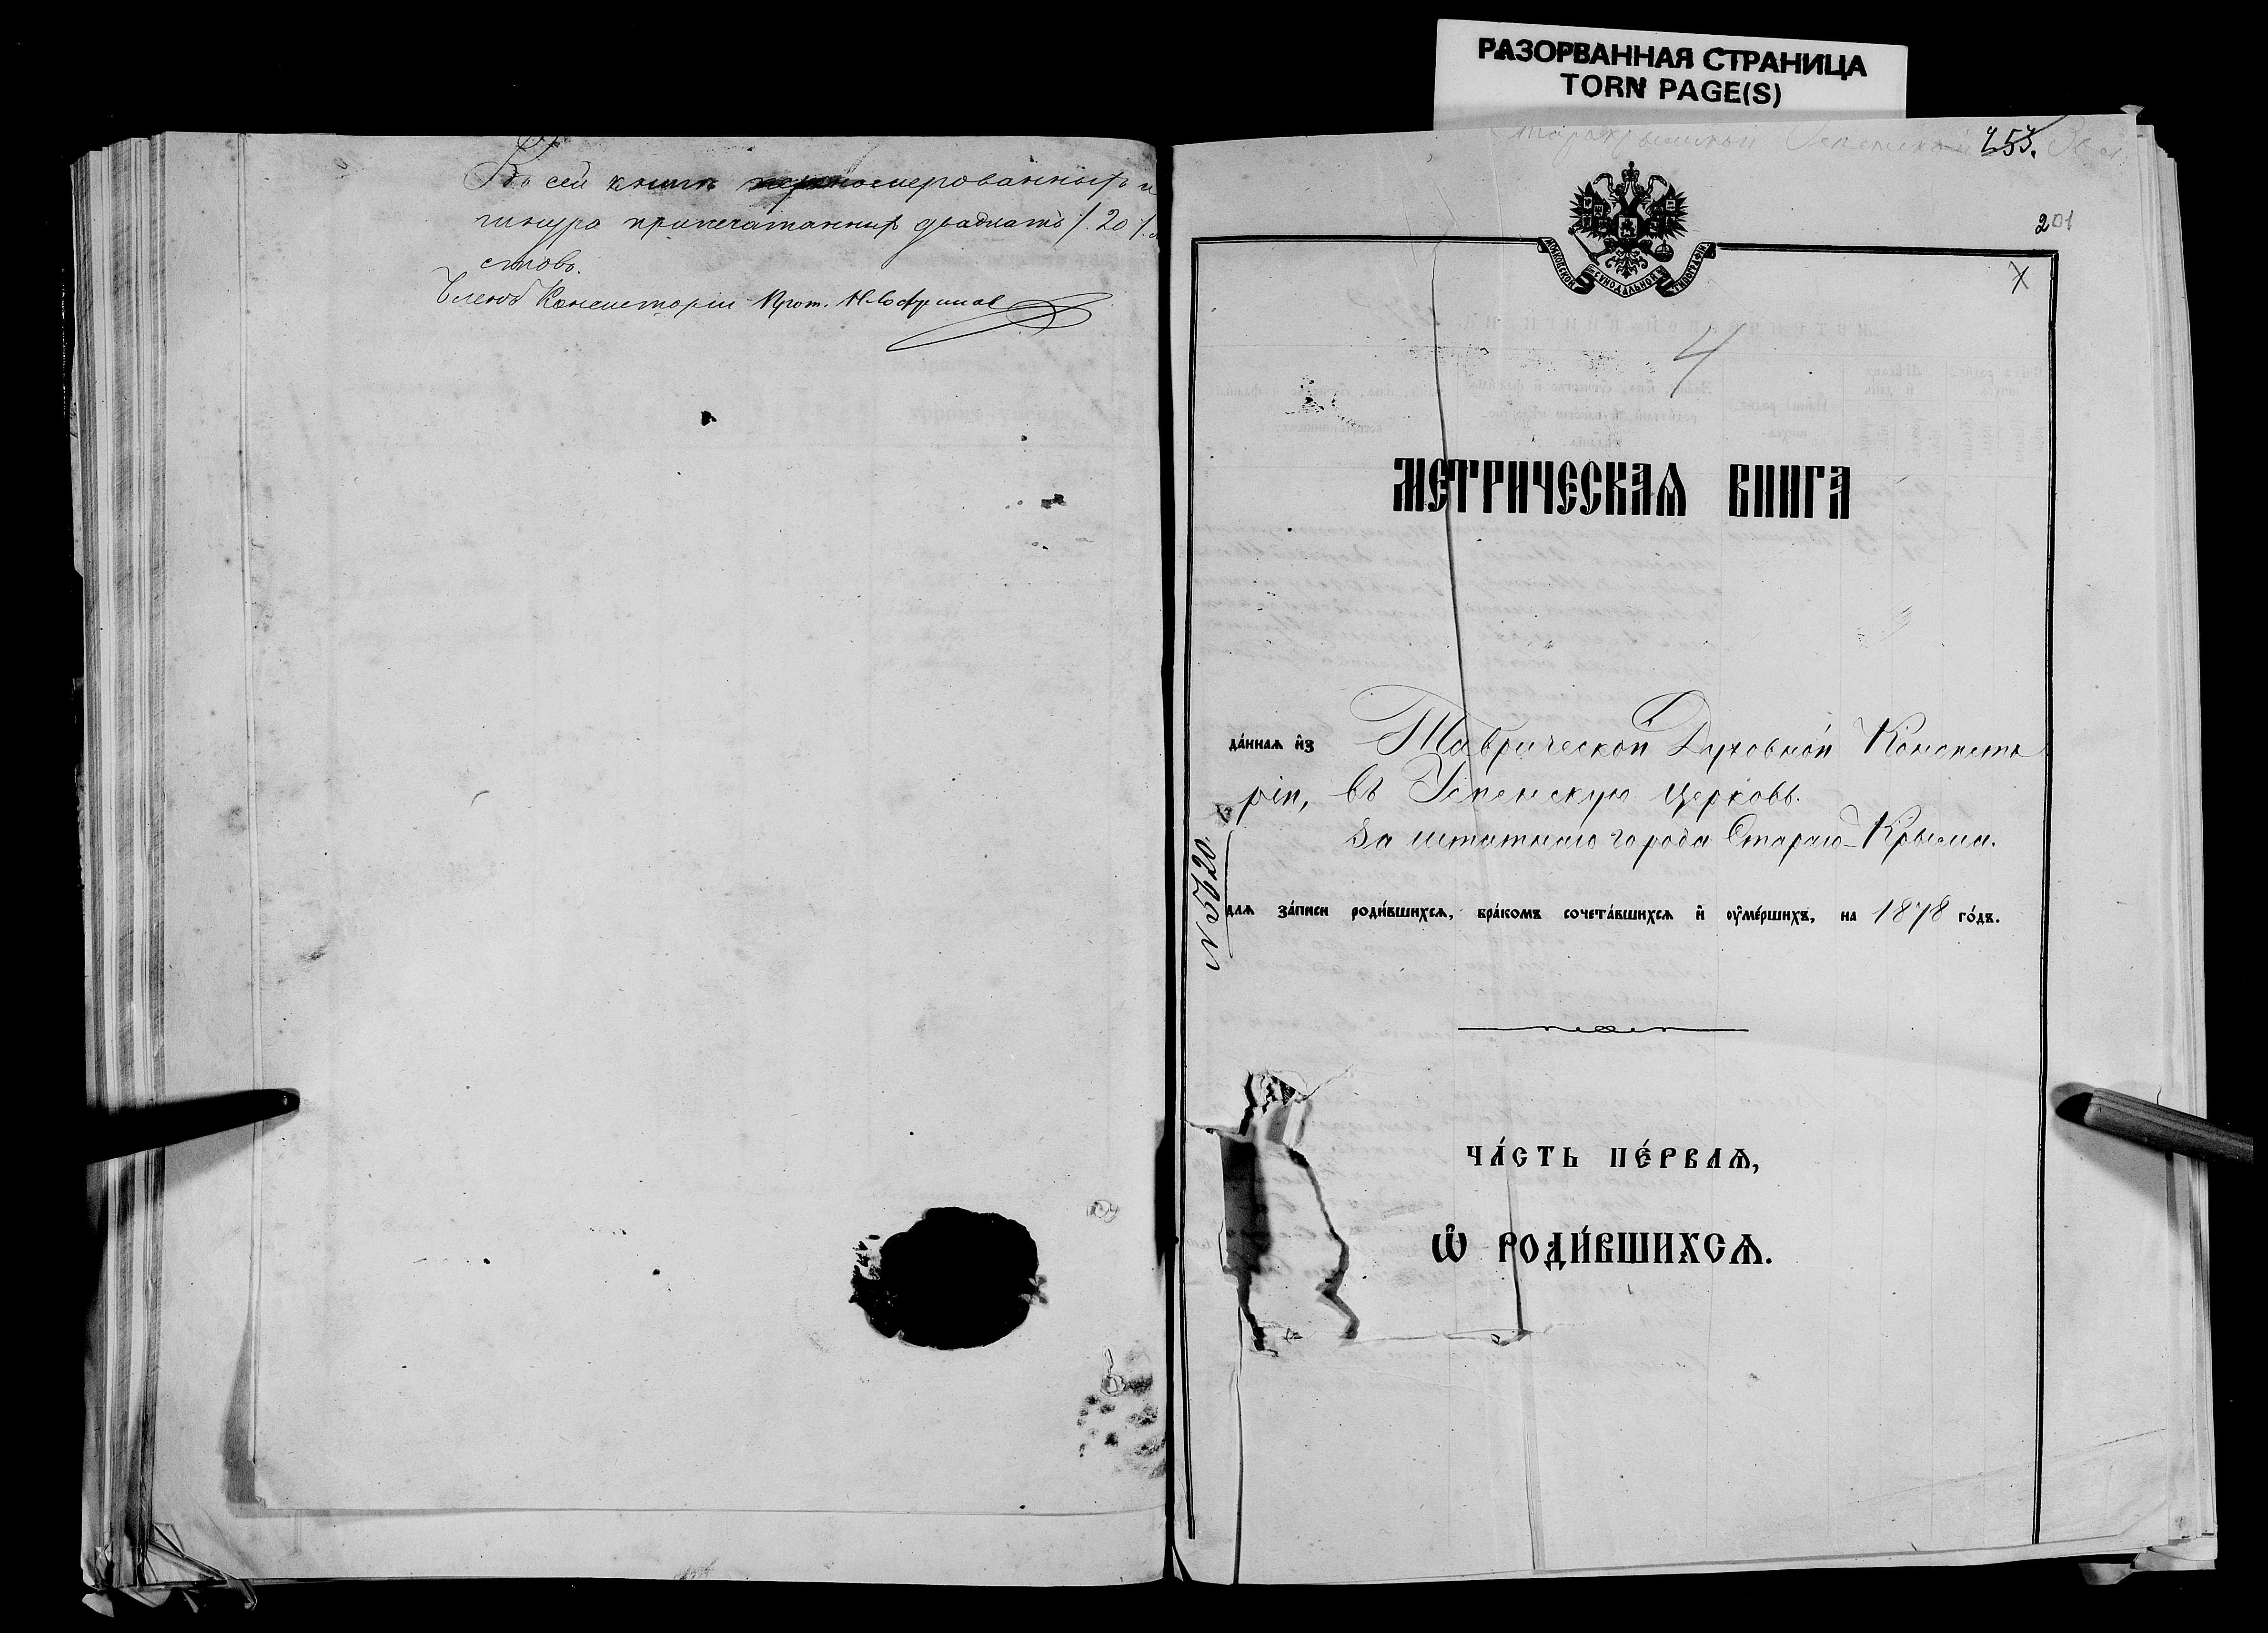 РАЗОРВАННАЯ СТРАНИЦА
TORN PAGE(S)
Въ сей книгѣ номерованныхъ и
шнура припечатанныхъ двадцать /. 20 /.
стовъ.
Членъ Консисторіи Прот.
253.
201
X
МОСКОВСКОЙ СѴНОДАЛЬНОЙ ТИПОГРАФІИ
4
МЕТРИЧЕСКАѦ КНИГА
да́ннаѧ и҆з Таврической Духовной Консисто
ріи, въ Успенскую церковь.
Заштатнаго города Стараго-Крыма.
N 5620.
длѧ за́писи роди́вшихсѧ, бра́комъ сочета́вшихсѧ и҆ ᲂу҆ме́ршихъ, на 1878 го́дъ.
ЧА́СТЬ ПЕ́РВАѦ,
Ѡ҆ РОДИ́ВШИХСѦ.